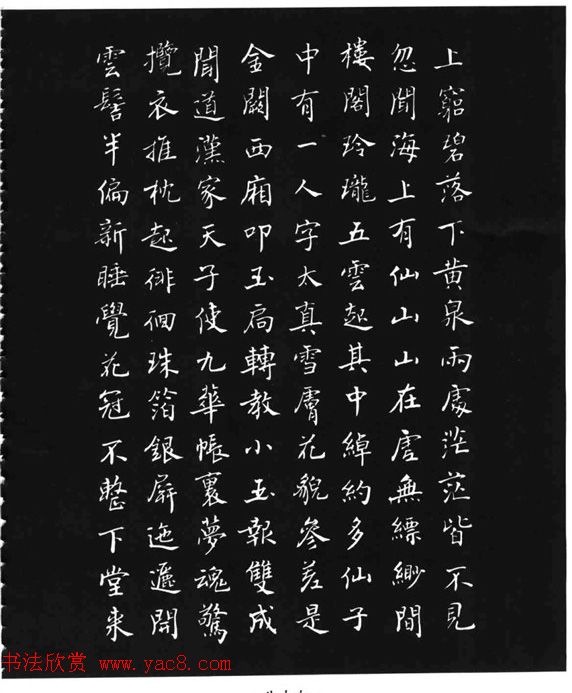 上窮碧落下黄泉兩處茫茫皆不見
忽聞海上有仙山山在虛無縹緲間
樓閣玲瓏五雲起其中綽約多仙子
中有一人字太真雪膚花貌參差是
金闕西廂叩玉扃轉教小玉報雙成
聞道漢家天子使九華帳裏夢魂驚
攬衣推枕起徘徊珠箔銀屏迤邐開
雲髻半偏新睡覺花冠不整下堂來
书法欣赏 www.yac8.com